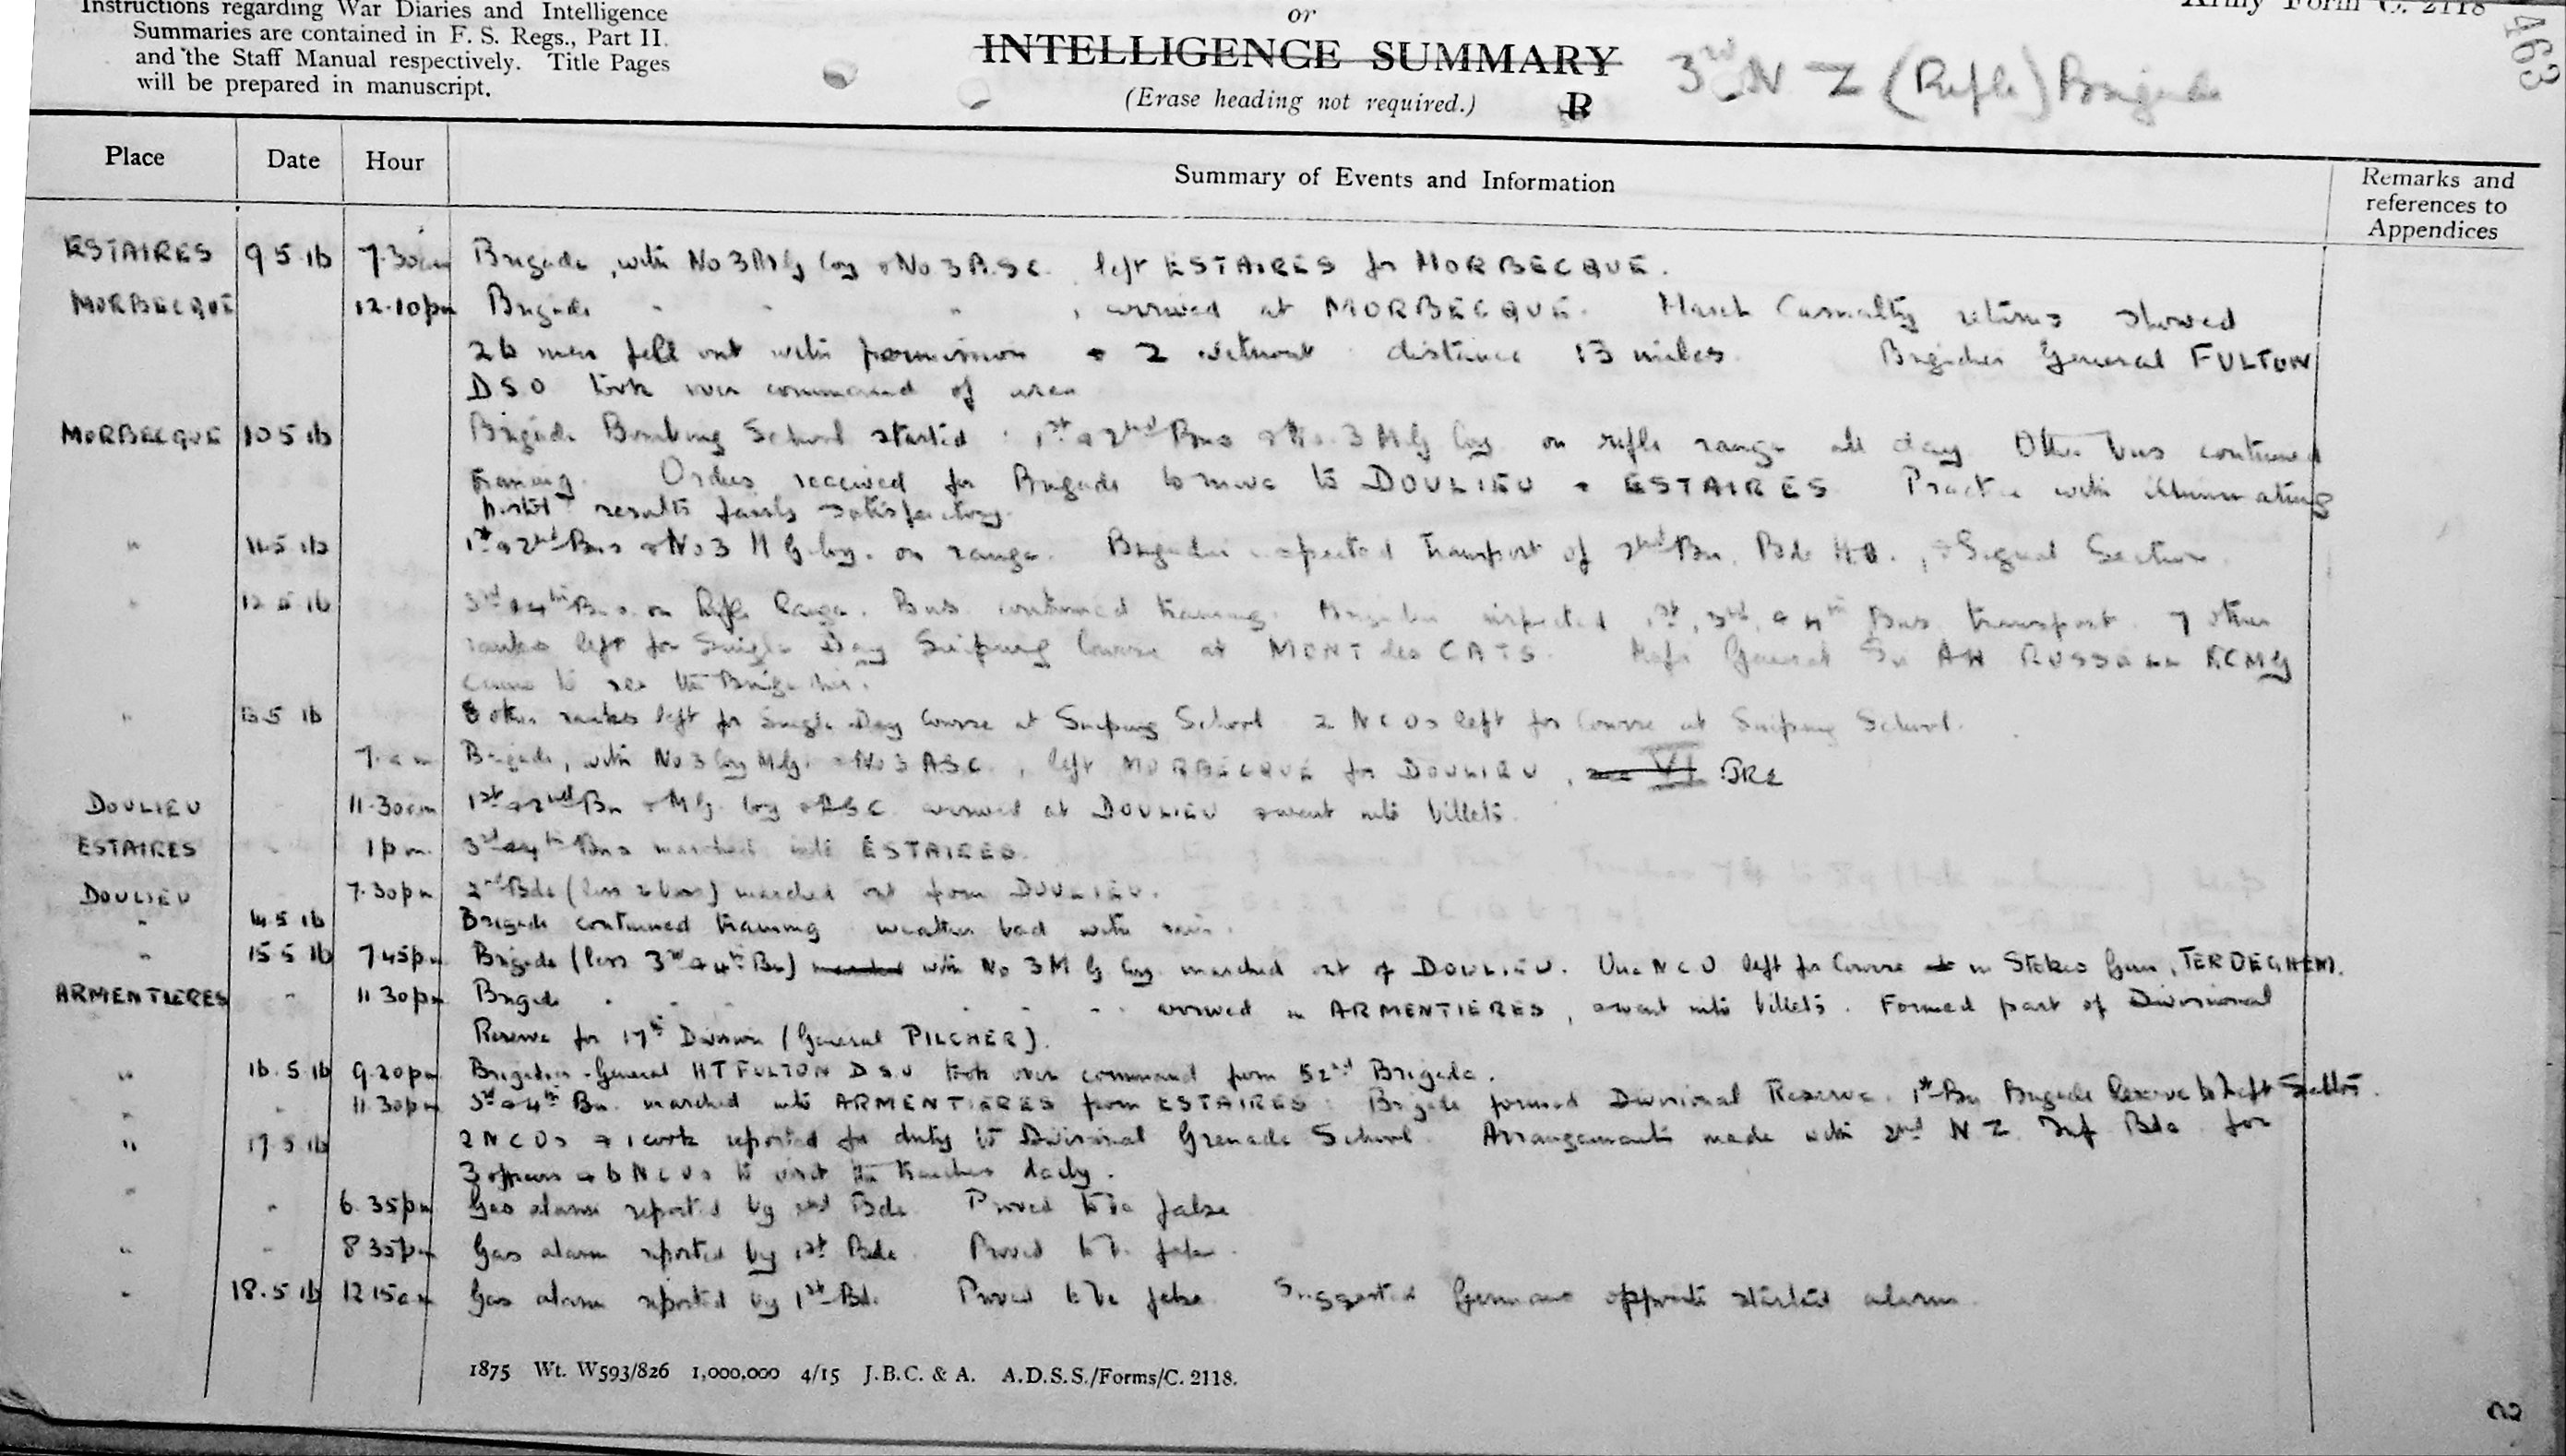 Instructions regarding War Diaries and Intelligence
Summaries are contained in F. S. Regs., Part II.
and the Staff Manual respectively. Title Pages
will be prepared in manuscript.
or
INTELLIGENCE SUMMARY
(Erase heading not required.)
Army Form C. 2118
463
3rd N Z (Rifle) Brigade
Place Date Hour Summary of Events and Information Remarks and references to Appendices
ESTAIRES 9 5 16 7.30am Brigade, with No 3 M G Coy & No 3 A.S.C. left ESTAIRES for MORBECQUE.
MORBECQUE 12.10pm Brigade " " " , arrived at MORBECQUE. March Casualty returns showed
26 men fell out with permission & 2 without distance 13 miles. Brigadier General FULTON
DSO took over command of area
MORBECQUE 10 5 16 Brigade Bombing School started : 1st & 2nd Bns & No. 3 M G Coy on rifle range all day Other bns continued
training. Orders received for Brigade to move to DOULIEU & ESTAIRES Practice with illuminating
pistol results fairly satisfactory.
" 11.5 16 1st & 2nd Bns & No 3 M G Coy. on range. Brigadier inspected transport of 2nd Bn. Bde HQ., & Signal Section
" 12 5 16 3rd & 4th Bns on Rifle Range. Bns continued training. Brigadier inspected 1st, 3rd, & 4th Bns transport. 7 other
ranks left for Single Day Sniping Course at MONT des CATS. Major General Sir AH RUSSELL KCMG
came to see the Brigadier.
" 13 5 16 8 other ranks left for Single Day Course at Sniping School 2 NCOs left for Course at Sniping School.
7. a m Brigade, with No 3 Coy M.G. & No 3 ASC., left MORBECQUE for DOULIEU, see VI
DOULIEU 11.30am 1st & 2nd Bn & M G. Coy & ASC arrived at DOULIEU & went into billets.
ESTAIRES " 1 pm. 3rd & 4th Bns marched into ESTAIRES.
DOULIEU " 7.30pm 2nd Bde (less 2 bns) marched out from DOULIEU.
" 14 5 16 Brigade continued training weather bad with rain.
" 15 5 16 7 45pm Brigade (less 3rd & 4th Bn) marched with No 3 M G Coy marched out of DOULIEU. One NCO left for Course at in Stokes Gun, TERDEGHEM.
ARMENTIERES " 11 30pm Brigade " " " " " arrived in ARMENTIERES, & went into billets. Formed part of Divisional
Reserve for 17th Division (General PILCHER).
" 16.5 16 9.20pm Brigadier-General H T FULTON D S O took over command from 52nd Brigade.
" " 11.30pm 3rd & 4th Bn. marched into ARMENTIERES from ESTAIRES. Brigade formed Divisional Reserve. 1st Bn Brigade Reserve to Left Sector.
" 17.5 16 2 NCOs & 1 cook reported for duty to Divisional Grenade School. Arrangements made with 2nd N Z Inf Bde for
3 officers & 6 NCOs to visit the trenches daily.
" " 6.35pm Gas alarm reported by 2nd Bde. Proved to be false
" " 8 35pm Gas alarm reported by 1st Bde Proved to be false.
" 18.5 16 12 15am Gas alarm reported by 1st Bde. Proved to be false. Suggested Germans opposite started alarm.
1875 Wt. W593/826 1,000,000 4/15 J.B.C. & A. A.D.S.S./Forms/C. 2118.